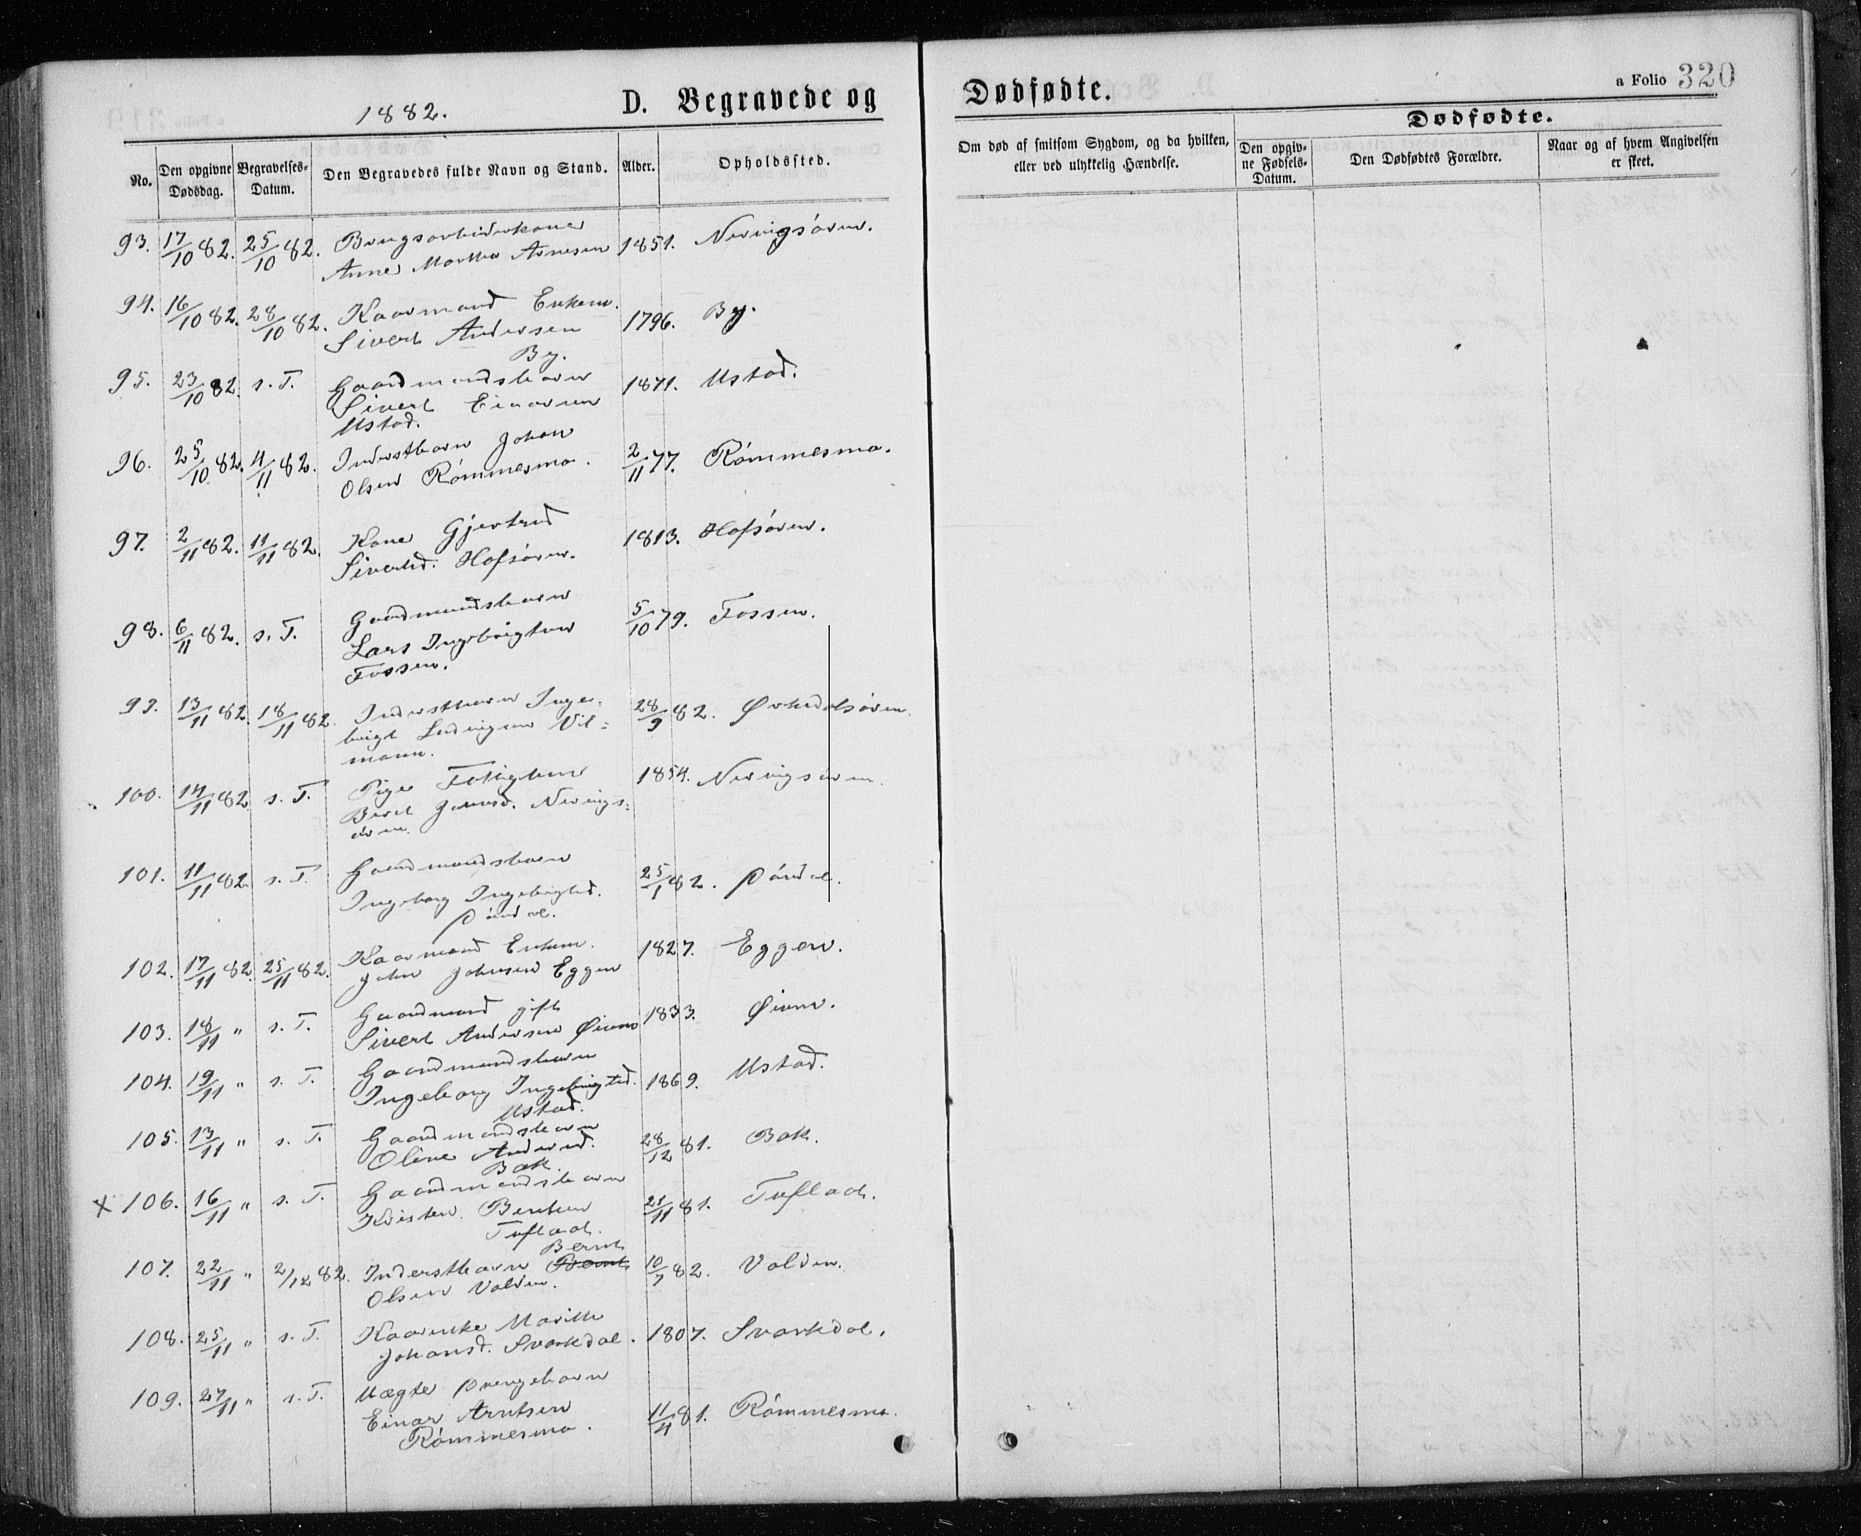 1882.
D. Begravede og
No.
Den opgivne Dødsdag.
Begravelses-Datum.
Den Begravedes fulde Navn og Stand.
Alder.
Opholdssted.
93. 17/10 82. 25/10 82. Brugsarbeiderkone 1851. Nervigsøren.
Anne Martha Arnesen
94. 16/10 82. 28/10 82. Kaarmand Enkem. 1796. By.
Sivert Andersen
By.
95. 23/10 82. s. T. Gaardmandsbarn 1871. Ustad.
Sivert Einarsen
Ustad.
96. 25/10 82. 4/11 82. Inderstbarn Johan 2/11 77. Rømmesmo.
Olsen Rømmesmo.
97. 2/11 82. 11/11 82. Kone Gjertrud 1813. Hofsøren.
Sivertsd. Hofsøren.
98. 6/11 82. s. T. Gaardmandsbarn 5/10 79. Fossen.
Lars Ingebrigtsen
Fossen.
99. 13/11 82. 18/11 82. Inderstbarn Inge- 28/9 82. Ørkedalsøren.
brigt Ludvigsen Vil-
mann.
100. 14/11 82. s. T. Pige Fattiglem 1854. Nervigsøren.
Beret Jonsd. Nervigs-
øren.
101. 11/11 82. s. T. Gaardmandsbarn 25/1 82.
Ingeborg Ingebrigtsd.
102. 17/11 82. 25/11 82. Kaarmand Enkem. 1827. Eggen.
John Johnsen Eggen
103. 18/11 " s. T. Gaardmand gift 1833. Øien.
Sivert Andersen Øien
104. 19/11 " s. T. Gaardmandsbarn 1869. Ustad.
Ingeborg Ingebrigtsd.
Ustad.
105. 13/11 " s. T. Gaardmandsbarn 28/12 81. Bak.
Oline Andersd.
Bak.
x 106. 16/11 " s. T. Gaardmandsbarn 21/11 81.
Kristen Berntsen
107. 22/11 " 2/12 82. Inderstbarn Bernt 10/7 82. Volden.
Olsen Volden.
108. 25/11 " s. T. Kaarenke Marith 1807. Svorkdal.
Johansd. Svorkdal.
109. 27/11 " s. T. Uægte Drengebarn 11/4 81. Rømmesmo.
Einar Arntsen
Rømmesmo.
Dødfødte.
a Folio 320
Om død af smitsom Sygdom, og da hvilken, eller ved ulykkelig Hændelse.
Dødfødte.
Den opgivne Fødsels-Datum.
Den Dødfødtes Forældre.
Naar og af hvem Angivelsen er skeet.